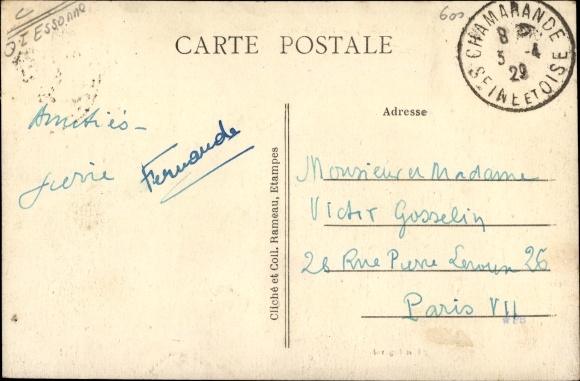 91 ESSONNE
CARTE POSTALE
600
CHAMARANDE
8
3 -4
29
SEINE ET OISE
Amitiés -
Pierre
Fernande
Cliché et Coll. Rameau, Etampes
Adresse
Monsieur et Madame
Victor Gosselin
26 Rue Pierre Leroux 26
Paris VII